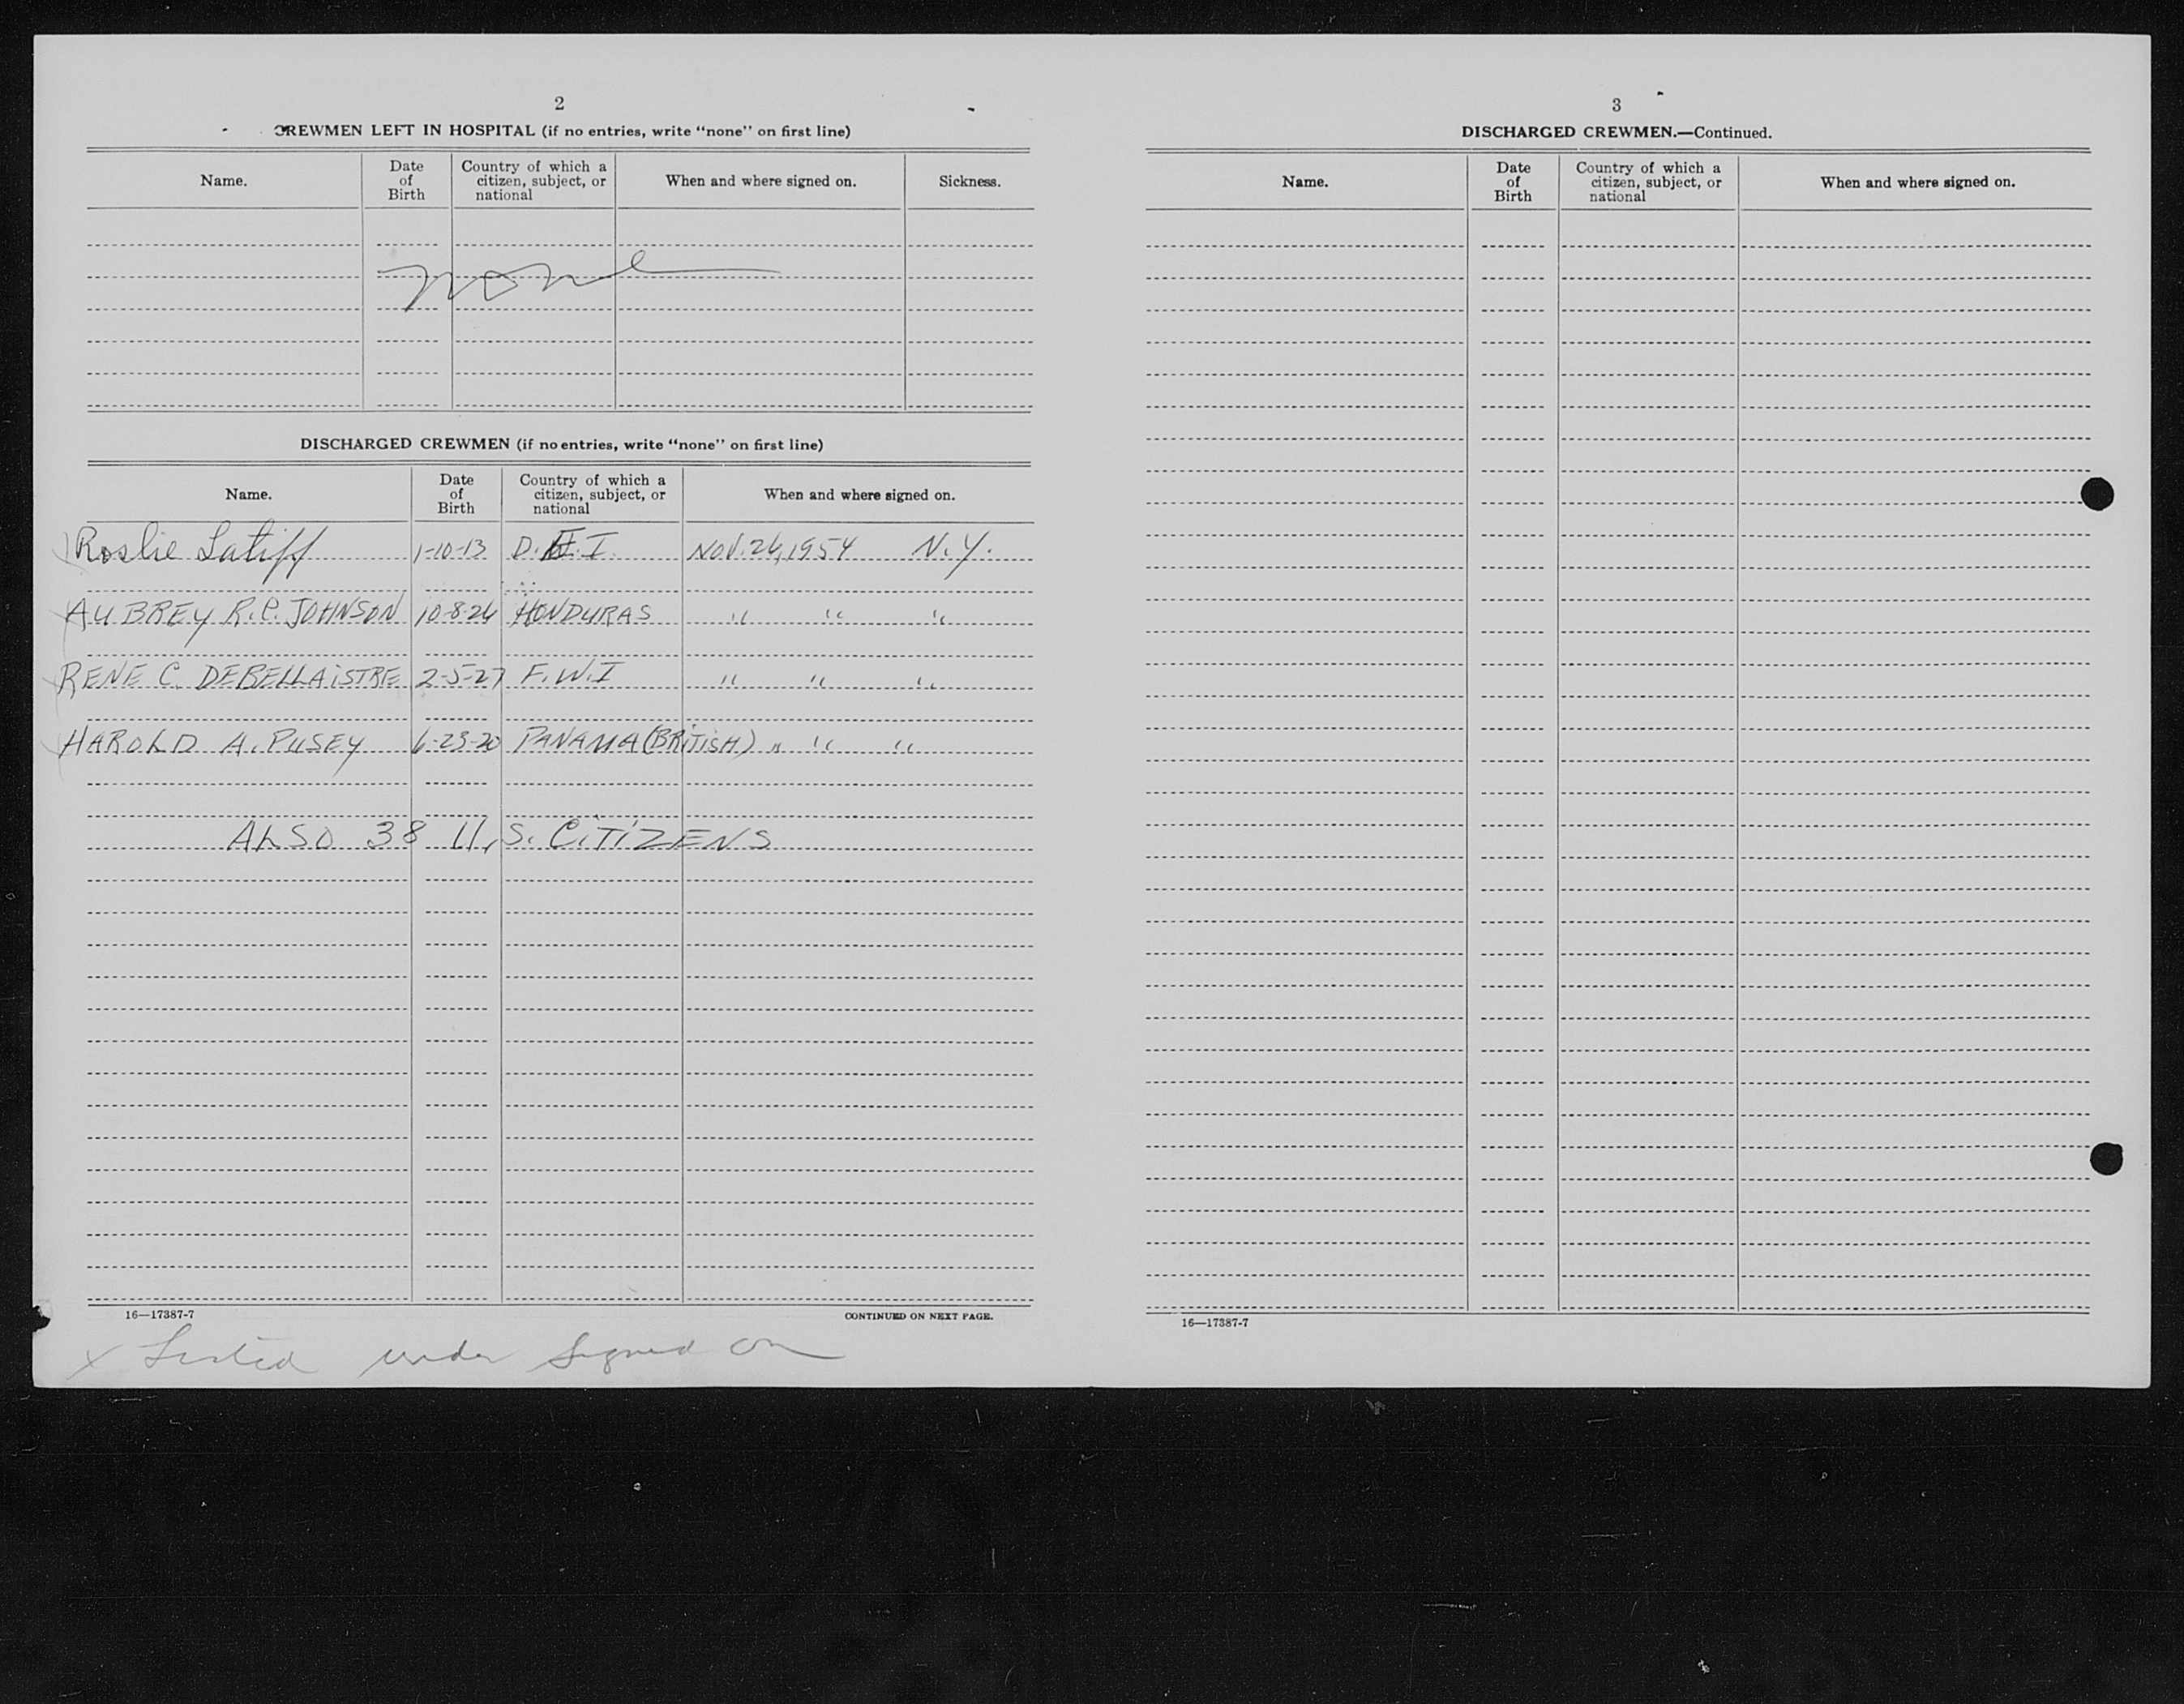 2
CREWMEN LEFT IN HOSPITAL (if no entries, write "none" on first line)
Name. Date of Birth Country of which a citizen, subject, or national When and where signed on. Sickness.
none
DISCHARGED CREWMEN (if no entries, write "none" on first line)
Name. Date of Birth Country of which a citizen, subject, or national When and where signed on.
Roslie Latiff 1-10-13 D. I. NOV. 26, 1954 N.Y.
AUBREY R.C. JOHNSON 10-8-26 HONDURAS " " "
RENE C. DEBELLAISTRE 2-5-27 F.W.I " " "
HAROLD A. PUSEY 6-23-20 PANAMA (BRITISH) " " "
ALSO 38 U.S. CITIZENS
16—17387-7 CONTINUED ON NEXT PAGE.
x Listed under signed on
3
DISCHARGED CREWMEN.—Continued.
Name. Date of Birth Country of which a citizen, subject, or national When and where signed on.
16—17387-7